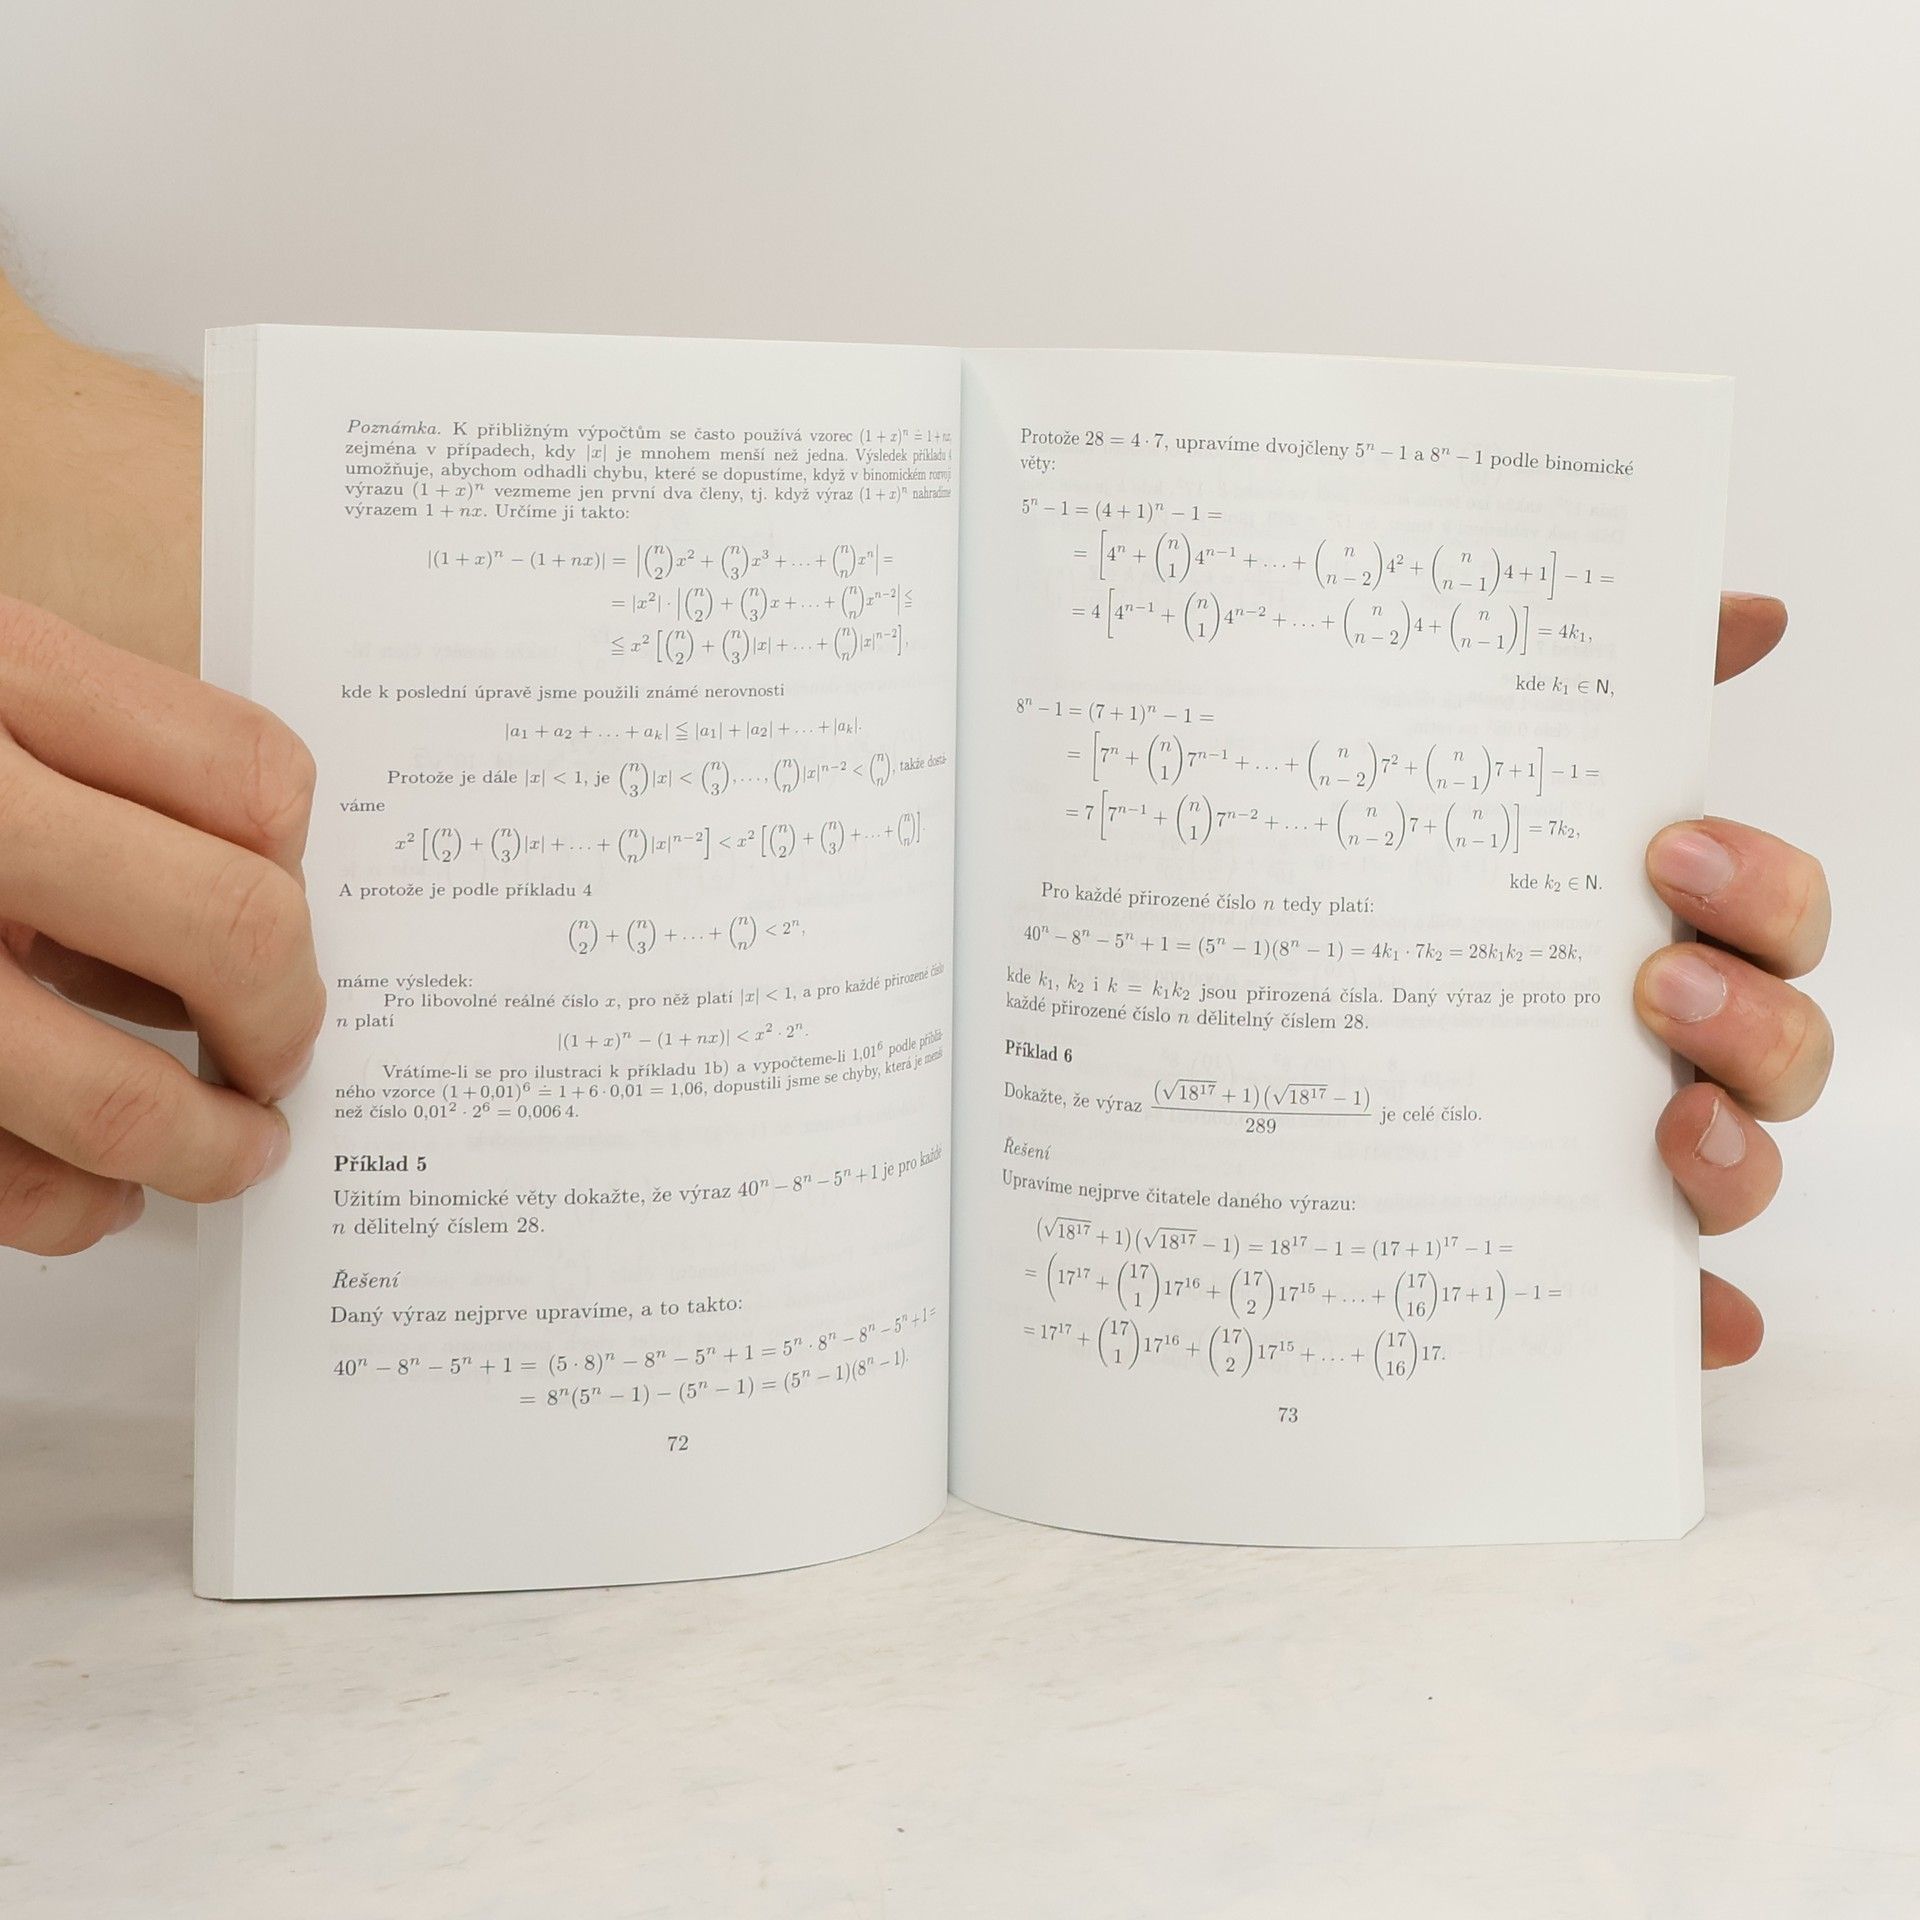 Poznámka. K přibližným výpočtům se často používá vzorec (1 + x)ⁿ ≐ 1 + nx,
zejména v případech, kdy |x| je mnohem menší než jedna. Výsledek příkladu 4
umožňuje, abychom odhadli chybu, které se dopustíme, když v binomickém rozvoji
výrazu (1 + x)ⁿ vezmeme jen první dva členy, tj. když výraz (1 + x)ⁿ nahradíme
výrazem 1 + nx. Určíme ji takto:
|(1 + x)ⁿ − (1 + nx)| = |(n 2)x² + (n 3)x³ + … + (n n)xⁿ| =
= |x²| · |(n 2) + (n 3)x + … + (n n)xⁿ⁻²| ≦
≦ x² [(n 2) + (n 3)|x| + … + (n n)|x|ⁿ⁻²],
kde k poslední úpravě jsme použili známé nerovnosti
|a₁ + a₂ + … + aₖ| ≦ |a₁| + |a₂| + … + |aₖ|.
Protože je dále |x| < 1, je (n 3)|x| < (n 3), …, (n n)|x|ⁿ⁻² < (n n), takže dostá-
váme
x² [(n 2) + (n 3)|x| + … + (n n)|x|ⁿ⁻²] < x² [(n 2) + (n 3) + … + (n n)].
A protože je podle příkladu 4
(n 2) + (n 3) + … + (n n) < 2ⁿ,
máme výsledek:
Pro libovolné reálné číslo x, pro něž platí |x| < 1, a pro každé přirozené číslo
n platí
|(1 + x)ⁿ − (1 + nx)| < x² · 2ⁿ.
Vrátíme-li se pro ilustraci k příkladu 1b) a vypočteme-li 1,01⁶ podle přibliž-
ného vzorce (1 + 0,01)⁶ ≐ 1 + 6 · 0,01 = 1,06, dopustili jsme se chyby, která je menší
než číslo 0,01² · 2⁶ = 0,006 4.
Příklad 5
Užitím binomické věty dokažte, že výraz 40ⁿ − 8ⁿ − 5ⁿ + 1 je pro každé
n dělitelný číslem 28.
Řešení
Daný výraz nejprve upravíme, a to takto:
40ⁿ − 8ⁿ − 5ⁿ + 1 = (5 · 8)ⁿ − 8ⁿ − 5ⁿ + 1 = 5ⁿ · 8ⁿ − 8ⁿ − 5ⁿ + 1 =
= 8ⁿ(5ⁿ − 1) − (5ⁿ − 1) = (5ⁿ − 1)(8ⁿ − 1).
72
Protože 28 = 4 · 7, upravíme dvojčleny 5ⁿ − 1 a 8ⁿ − 1 podle binomické
věty:
5ⁿ − 1 = (4 + 1)ⁿ − 1 =
= [4ⁿ + (n 1)4ⁿ⁻¹ + … + (n n − 2)4² + (n n − 1)4 + 1] − 1 =
= 4 [4ⁿ⁻¹ + (n 1)4ⁿ⁻² + … + (n n − 2)4 + (n n − 1)] = 4k₁,
kde k₁ ∈ N,
8ⁿ − 1 = (7 + 1)ⁿ − 1 =
= [7ⁿ + (n 1)7ⁿ⁻¹ + … + (n n − 2)7² + (n n − 1)7 + 1] − 1 =
= 7 [7ⁿ⁻¹ + (n 1)7ⁿ⁻² + … + (n n − 2)7 + (n n − 1)] = 7k₂,
kde k₂ ∈ N.
Pro každé přirozené číslo n tedy platí:
40ⁿ − 8ⁿ − 5ⁿ + 1 = (5ⁿ − 1)(8ⁿ − 1) = 4k₁ · 7k₂ = 28k₁k₂ = 28k,
kde k₁, k₂ i k = k₁k₂ jsou přirozená čísla. Daný výraz je proto pro
každé přirozené číslo n dělitelný číslem 28.
Příklad 6
Dokažte, že výraz (√18¹⁷ + 1)(√18¹⁷ − 1) / 289 je celé číslo.
Řešení
Upravíme nejprve čitatele daného výrazu:
(√18¹⁷ + 1)(√18¹⁷ − 1) = 18¹⁷ − 1 = (17 + 1)¹⁷ − 1 =
= (17¹⁷ + (17 1)17¹⁶ + (17 2)17¹⁵ + … + (17 16)17 + 1) − 1 =
= 17¹⁷ + (17 1)17¹⁶ + (17 2)17¹⁵ + … + (17 16)17.
73